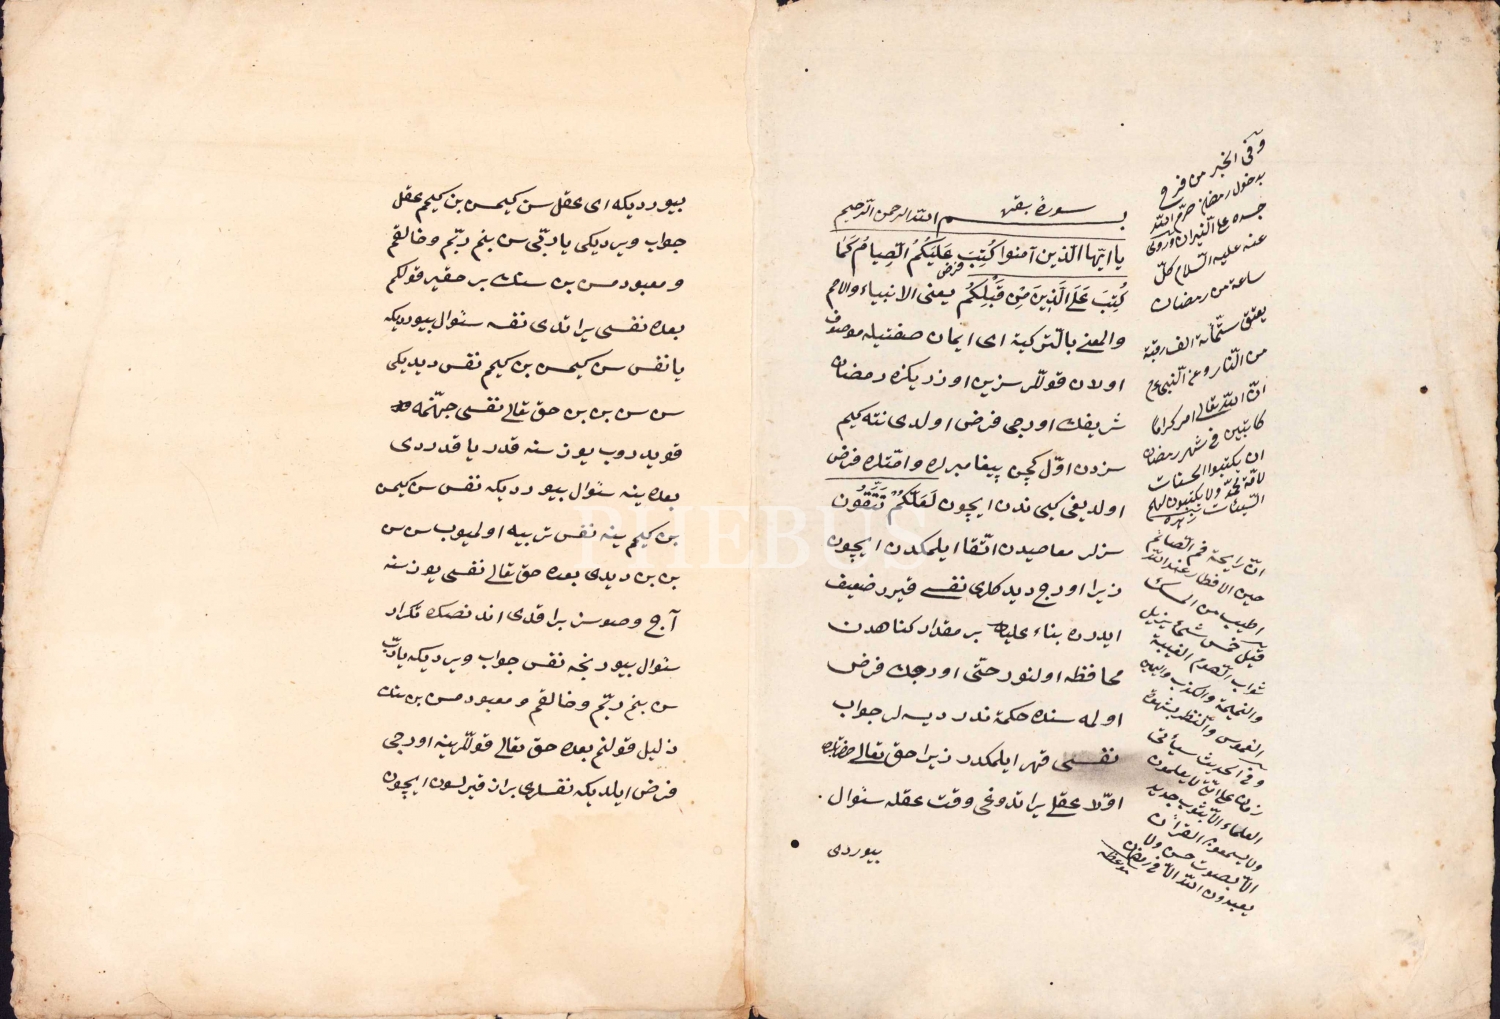 سورة بقره
بسم الله الرحمن الرحيم
يا ايّها الّذين آمنوا كُتِبَ عَلَيكُمُ الصِّيامُ كَمَا
فرض
كُتِبَ عَلَى الَّذِينَ مِنْ قَبْلِكُمْ يعنى الانبياء والامم
والمعنى بالتركية اى ايمان صفتيله موصوف
اولان قوللر سزين اوزريكزه رمضان
شريفك اورجى فرض اولدى نته كيم
سزدن اوّل كچن پيغامبرله وامّتله فرض
اولديغى كبى ندن ايچون لَعَلَّكُمْ تَتَّقُون
سزلر معاصيدن اتّقا ايلمكدن ايچون
زيرا اورج ديدكلرى نفسى قير وضعيف
ايدر بناء عليه بر مقدار كناهدن
محافظه اولنور حتى اورجك فرض
اولمه سنده حكمة ندر ديسه لر جواب
نفسى قهر ايلمكدر زيرا حق تعالى حضرتلرى
اوّلا عقلى يراتدوغى وقت عقله سئوال
بيوردى
وفى الخبر من فرح
بدخول رمضان حرّم الله
جسده على النيران وروى
عنه عليه السّلام كلّ
ساعة من رمضان
يعتق ستّمائة الف رقبة
من النّار وعن النّبى عم
انّ الله تعالى امر كراما
كاتبين فى شهر رمضان
ان يكتبوا الحسنات
لامّة محمّد ولا يكتبون لهم
السّيّئات
انّ رايحة فم الصائم
حين الافطار عند الله
اطيب من المسك
قيل خمس شئ يزيل
ثواب الصّوم الغيبة
والنميمة والكذب واليمين
الغموس والنّظر بشهوة
وفى الحديث سيأتى
زمان على امّتى لا يعلمون
العلماء الّا بثوب جديد
ولا يسمعون القرآن
الّا بصوت حسن ولا
يعبدون الله الّا فى رمضان
موعظه
بيورديكه اى عقل سن كيمسن بن كيمم عقل
جواب ويرديكى يا ربّى سن بنم ربّم وخالقم
ومعبودمسن بن سنك بر حقير قولكم
بعده نفسى يراتدى نفسه سئوال بيورديكه
يا نفس سن كيمسن بن كيمم نفس ديديكى
سن سن بن بن حق تعالى نفسى جهنّمه
قويدروب يوز سنه قدر ياقدردى
بعده ينه سئوال بيورديكه نفس سن كيمسن
بن كيمم ينه نفس تربيه اولميوب سن سن
بن بن ديدى بعده حق تعالى نفسى يوز سنه
آج وصوسز براقدى اندنصكره تكرار
سئوال بيورنجه نفس جواب ويرديكه يا ربّ
سن بنم ربّم وخالقم ومعبودمسن بن سنك
ذليل قولنم بعده حق تعالى قوللرينه اورجى
فرض ايلديكه نفسلرى براز قيرلسون ايچون
PHEBUS